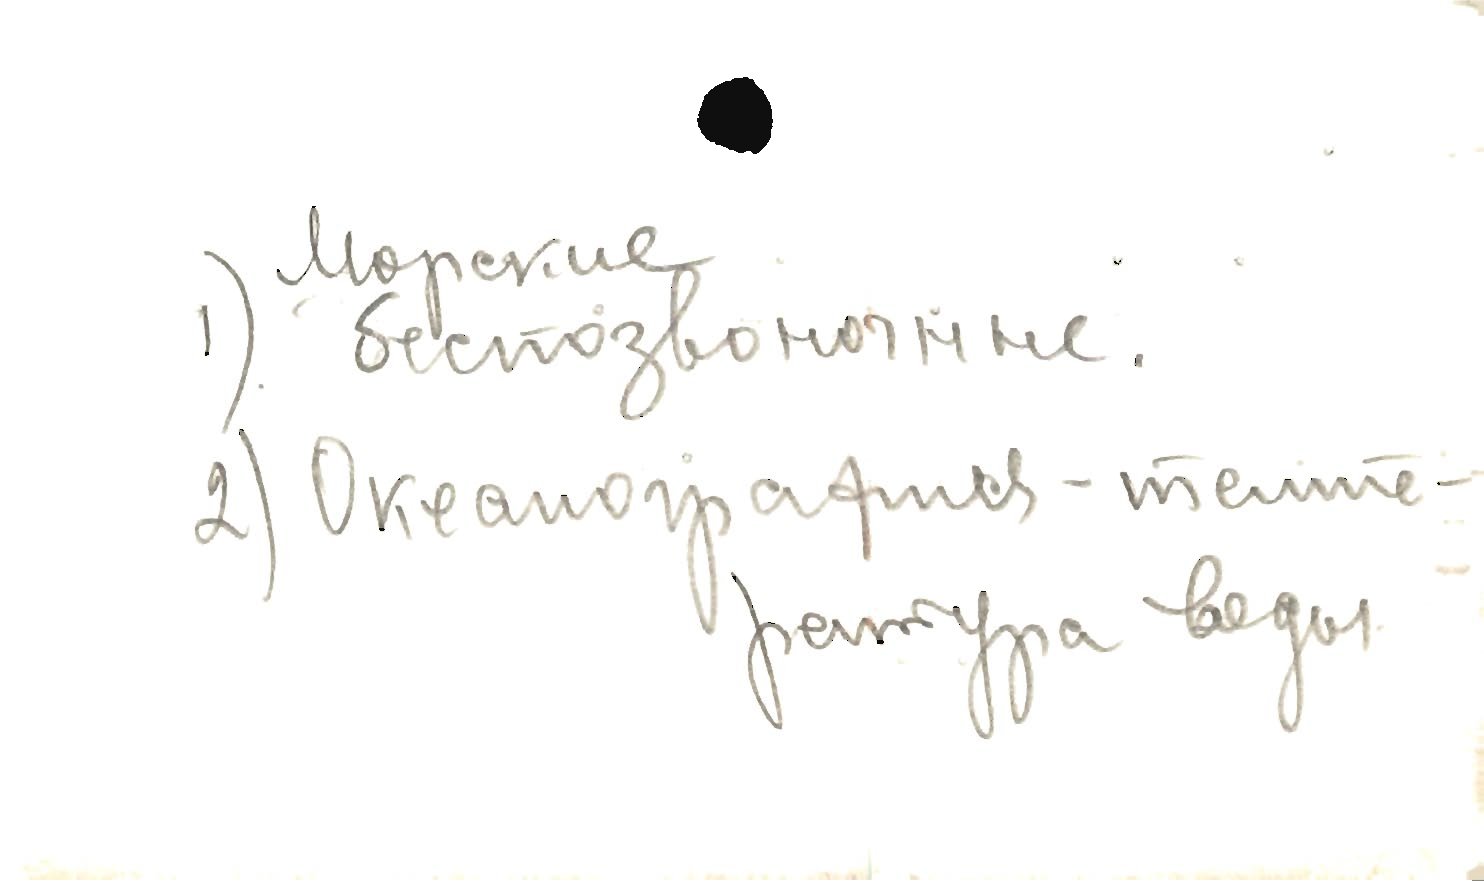 1) Морские
беспозвоночные.
2) Океанография - темпе-
ратура воды